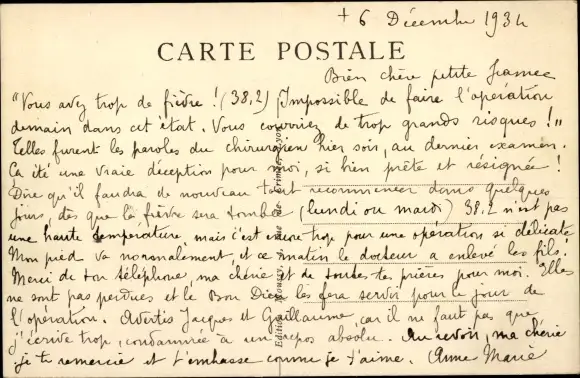 + 6 Décembre 1934
CARTE POSTALE
Bien chère petite France
"Vous avez trop de fièvre ! (38,2) Impossible de faire l'opération
demain dans cet état. Vous courriez de trop grands risques !"
Telles furent les paroles du chirurgien hier soir, au dernier examen.
Ça été une vraie déception pour moi, si bien prête et résignée !
Dire qu'il faudra de nouveau tout recommencer dans quelques
jours, dès que la fièvre sera tombée (lundi ou mardi) 38,2 n'est pas
une haute température, mais c'est encore trop pour une opération si délicate
Mon pied va normalement, et ce matin le docteur a enlevé les fils !
Merci de ton téléphone, ma chérie et de toutes tes prières pour moi. Elles
ne sont pas perdues et le Bon Dieu les fera servir pour le jour de
l'opération. Avertis Jacques et Guillaume, car il ne faut pas que
j'écrive trop, condamnée à un repos absolu. Au revoir, ma chérie
je te remercie et t'embrasse comme je t'aime. Anne Marie